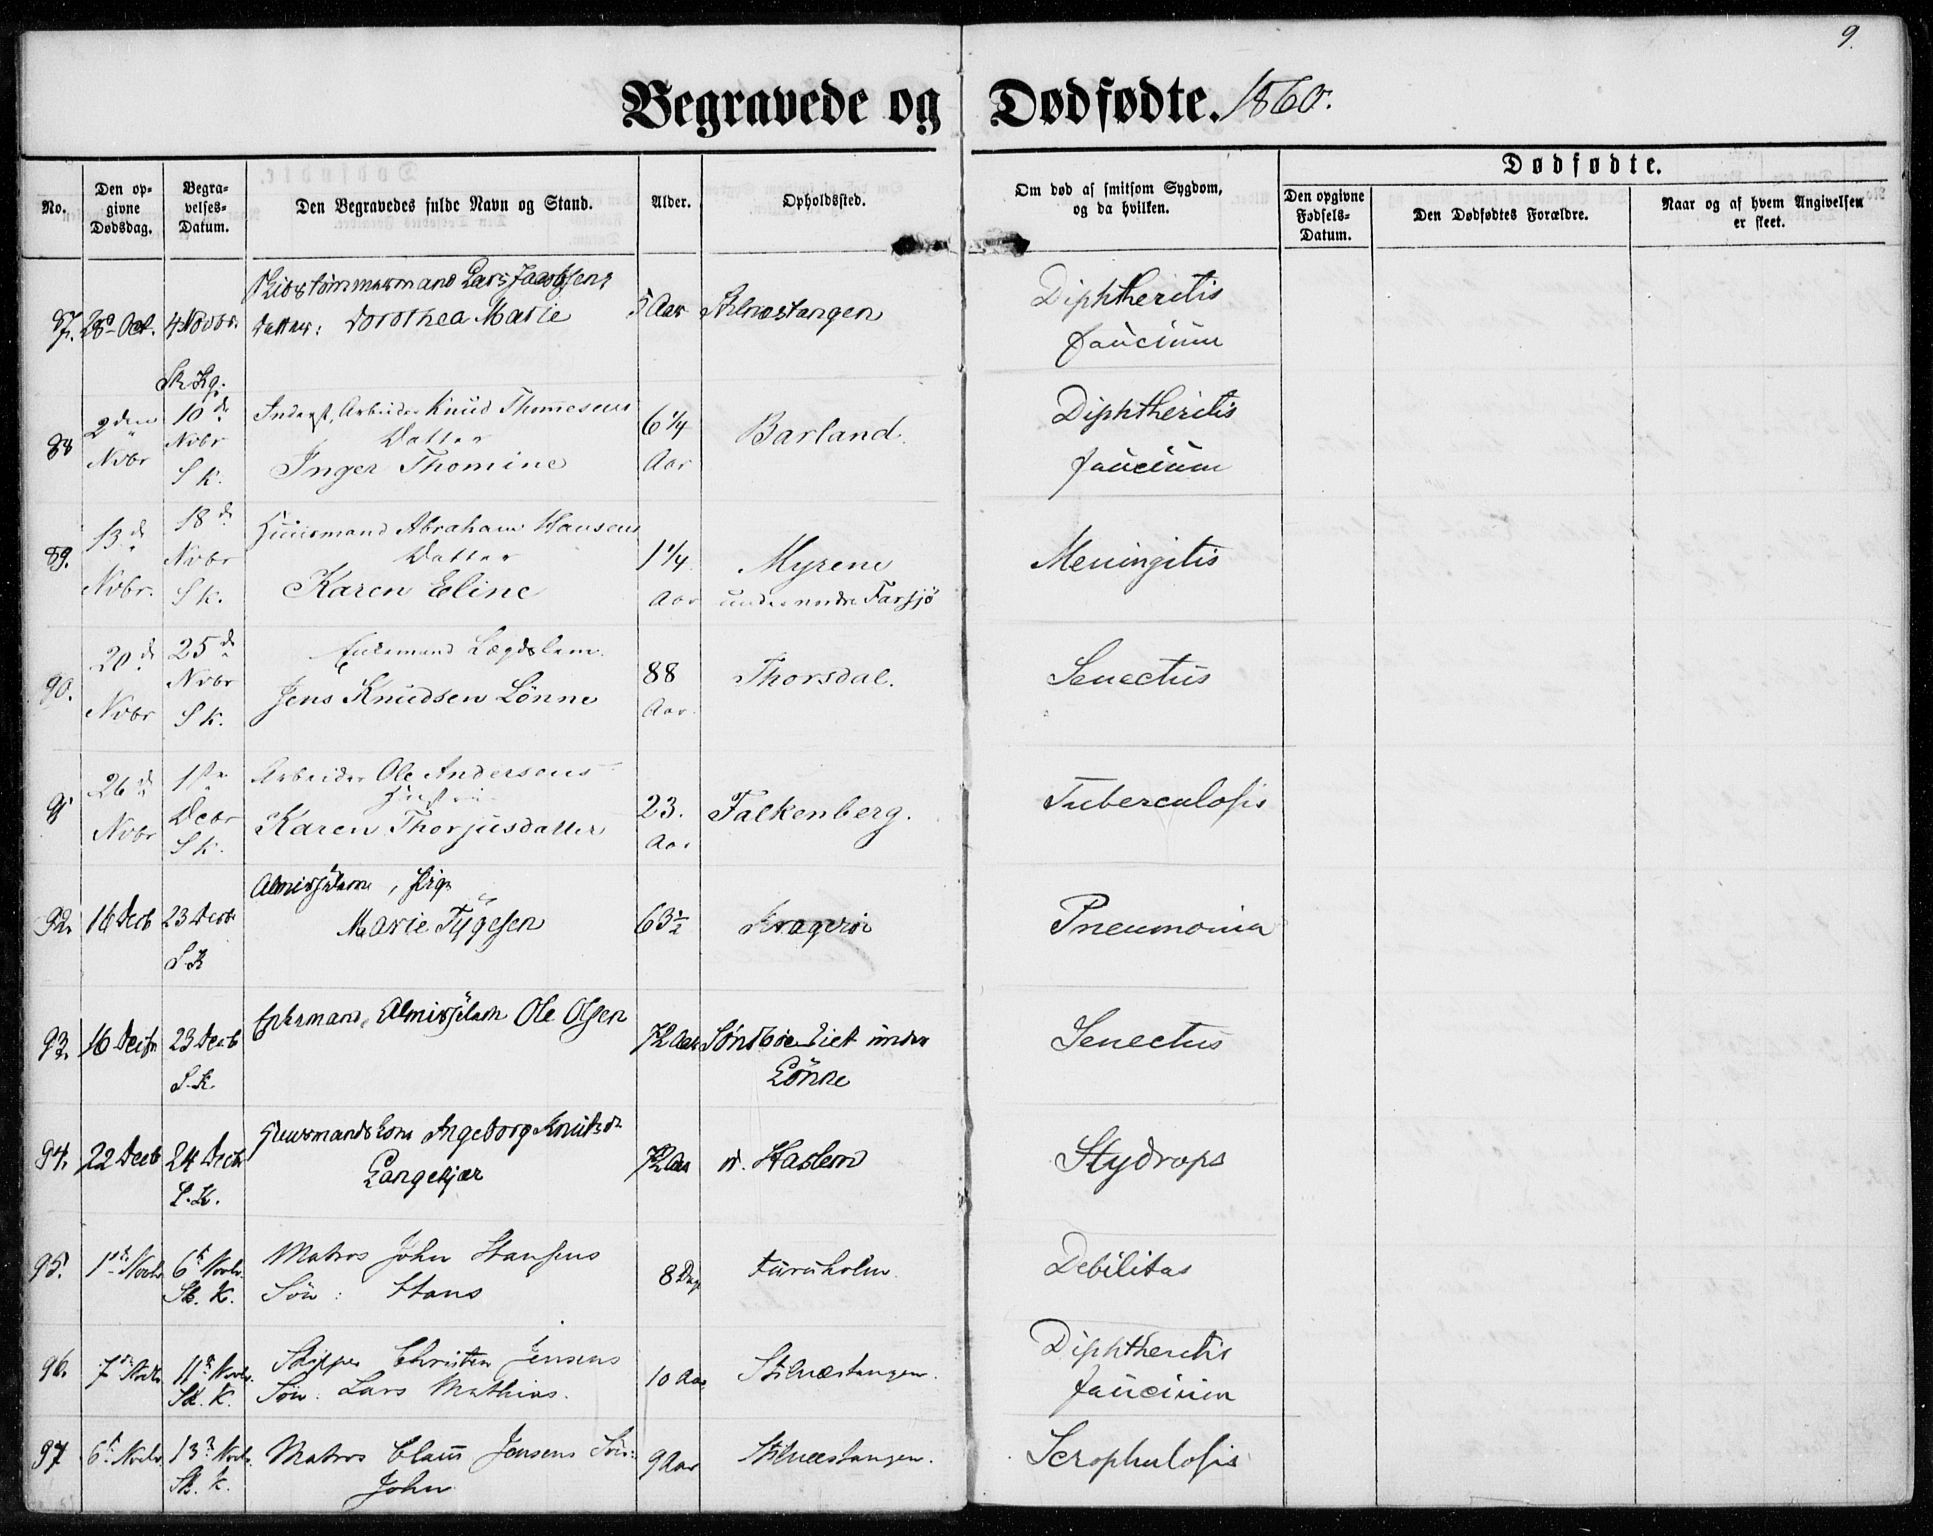 9.
Begravede og Dødfødte. 1860.
No.
Den opgivne Dødsdag.
Begravelses-Datum.
Den Begravedes fulde Navn og Stand.
Alder.
Opholdssted.
Om død af smitsom Sygdom, og da hvilken.
Dødfødte.
Den opgivne Fødsels-Datum.
Den Dødfødtes Forældre.
Naar og af hvem Angivelsen er skeet.
Lars Jacobsens
87. 28de Oct. 4 Novbr. Datter: Dorothea Marie 5 Aar Diphtheritis
faucium
Sk. Kg.
88 2den Nvbr 10de Nvbr S K. Arbeider Knud Thomesens
Datter
Inger Thomine 6 1/4 Aar Barland. Diphtheritis
faucium
89. 13de Nvbr. 18de Nvbr S K. Huusmand Abraham Hansens
Datter
Karen Eline 1 1/4 Aar Myrene
under nedre Farsjø Meningitis
90. 20de Nvbr 25de Nvbr S K. Enkemand Lægdslem
Jens Knudsen Lønne 88 Aar. Thorsdal. Senectus
91 26de Nvbr 1ste Decbr S K. Arbeider Ole Andersens
Hustru
Karen Thorjusdatter 23. Aar Falkenberg. Tuberculosis
92. 16 Decb 23 Decbr S. K Almisselem, Pige
Marie Tygesen 63 1/2 Kragerø Pneumonia
93. 16 Decbr 23 Decb S. K. Enkemand, Almisselem Ole Olsen 72 Aar under
Lønne Senectus
94. 22 Decb 24 Decb S. K. Huusmandskone Ingeborg Knutsdr
Langekjær 72 Aar n. Haslem Hydrops
95. 1ste Novbr. 6te Novbr. Sk. K. Matros John Hansens
Søn: Hans 8 Dage Furuholm. Debilitas
96. 7de Novbr. 11te Novbr. Sk. K. Skipper Christen Jensens
Søn: Lars Mathias. 10 Aar Stilnestangen. Diphtheritis
faucium
97 6te Novbr. 13de Novbr. Sk. K. Matros Claus Jensens Søn:
John 9 Aar Stilnestangen. Scrophulosis